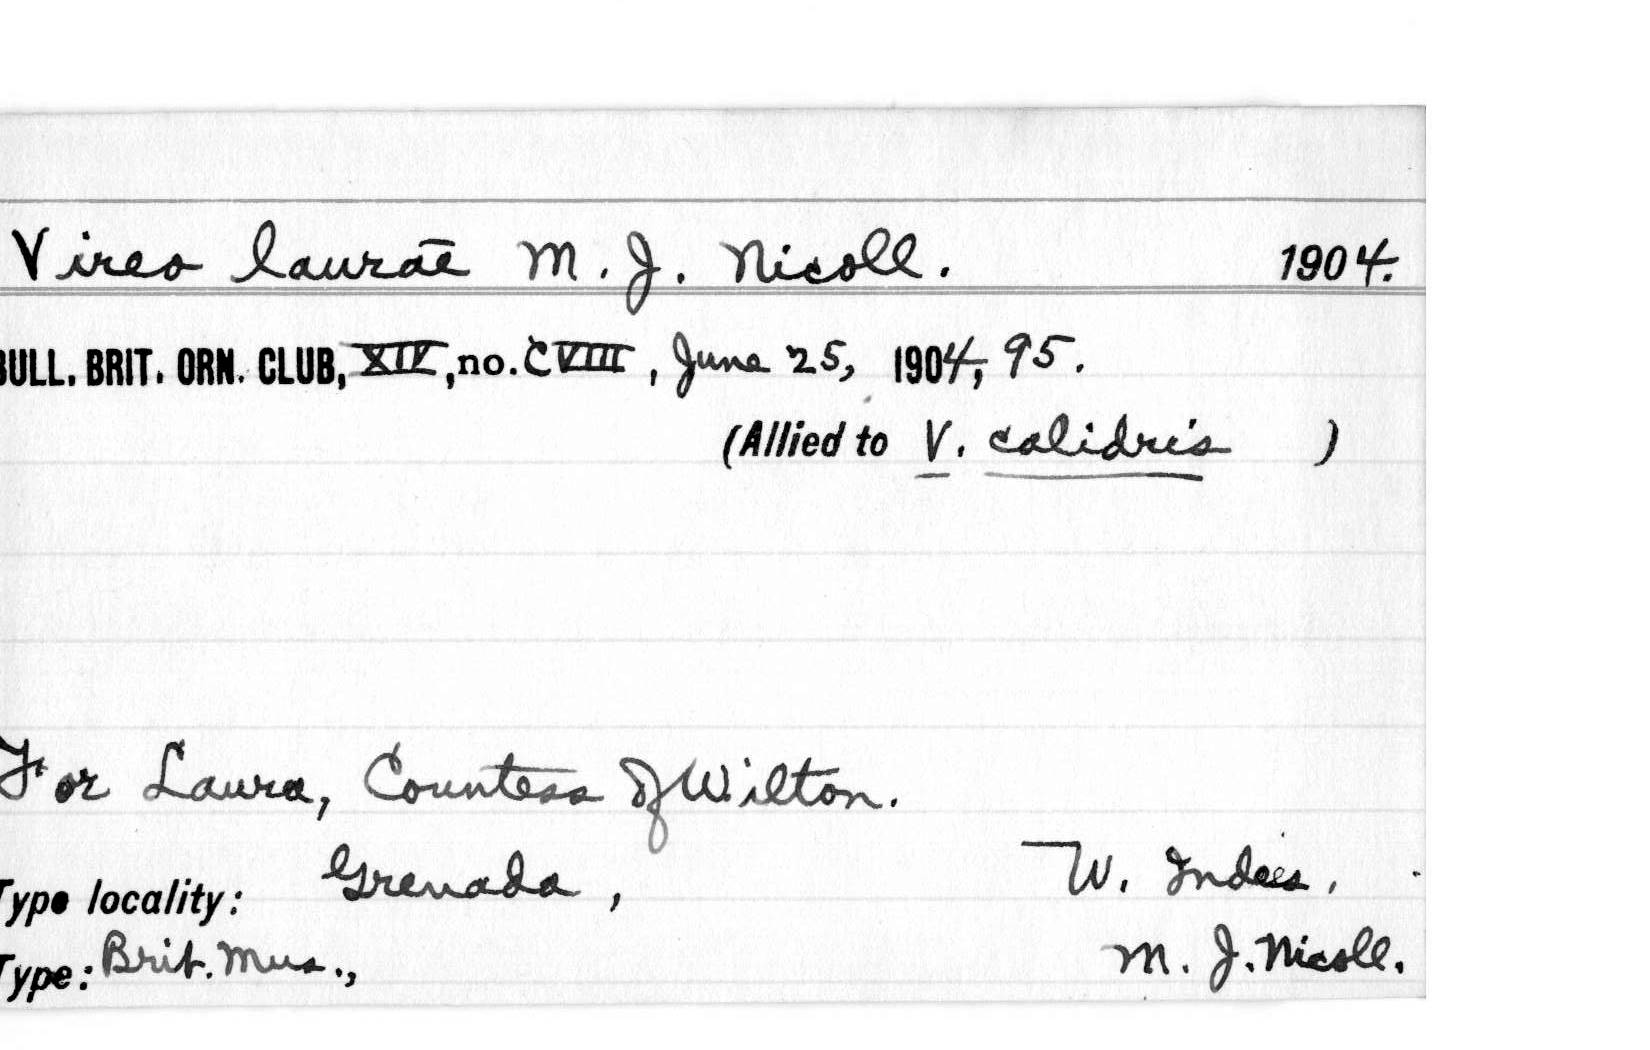 Vireo lauraē M. J. Nicoll. 1904.
BULL. BRIT. ORN. CLUB, XIV, no. CVIII, June 25, 1904, 95.
(Allied to V. calidris )
For Laura, Countess of Wilton.
Type locality: Grenada, W. Indies.
Type: Brit. Mus., M. J. Nicoll.